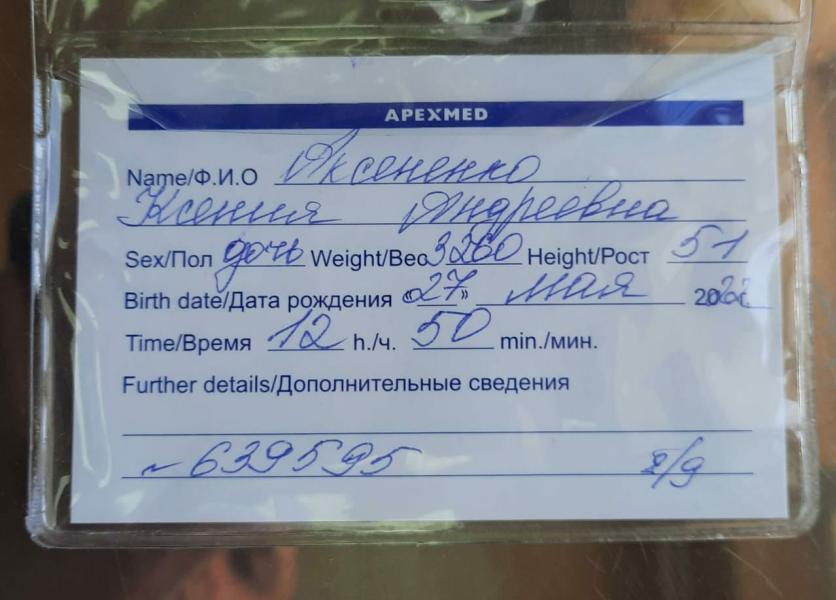 APEXMED
Name/Ф.И.О Аксененко
Ксения Андреевна
Sex/Пол дочь Weight/Вес 3260 Height/Рост 51
Birth date/Дата рождения «27» мая 2022
Time/Время 12 h./ч. 50 min./мин.
Further details/Дополнительные сведения
~639595